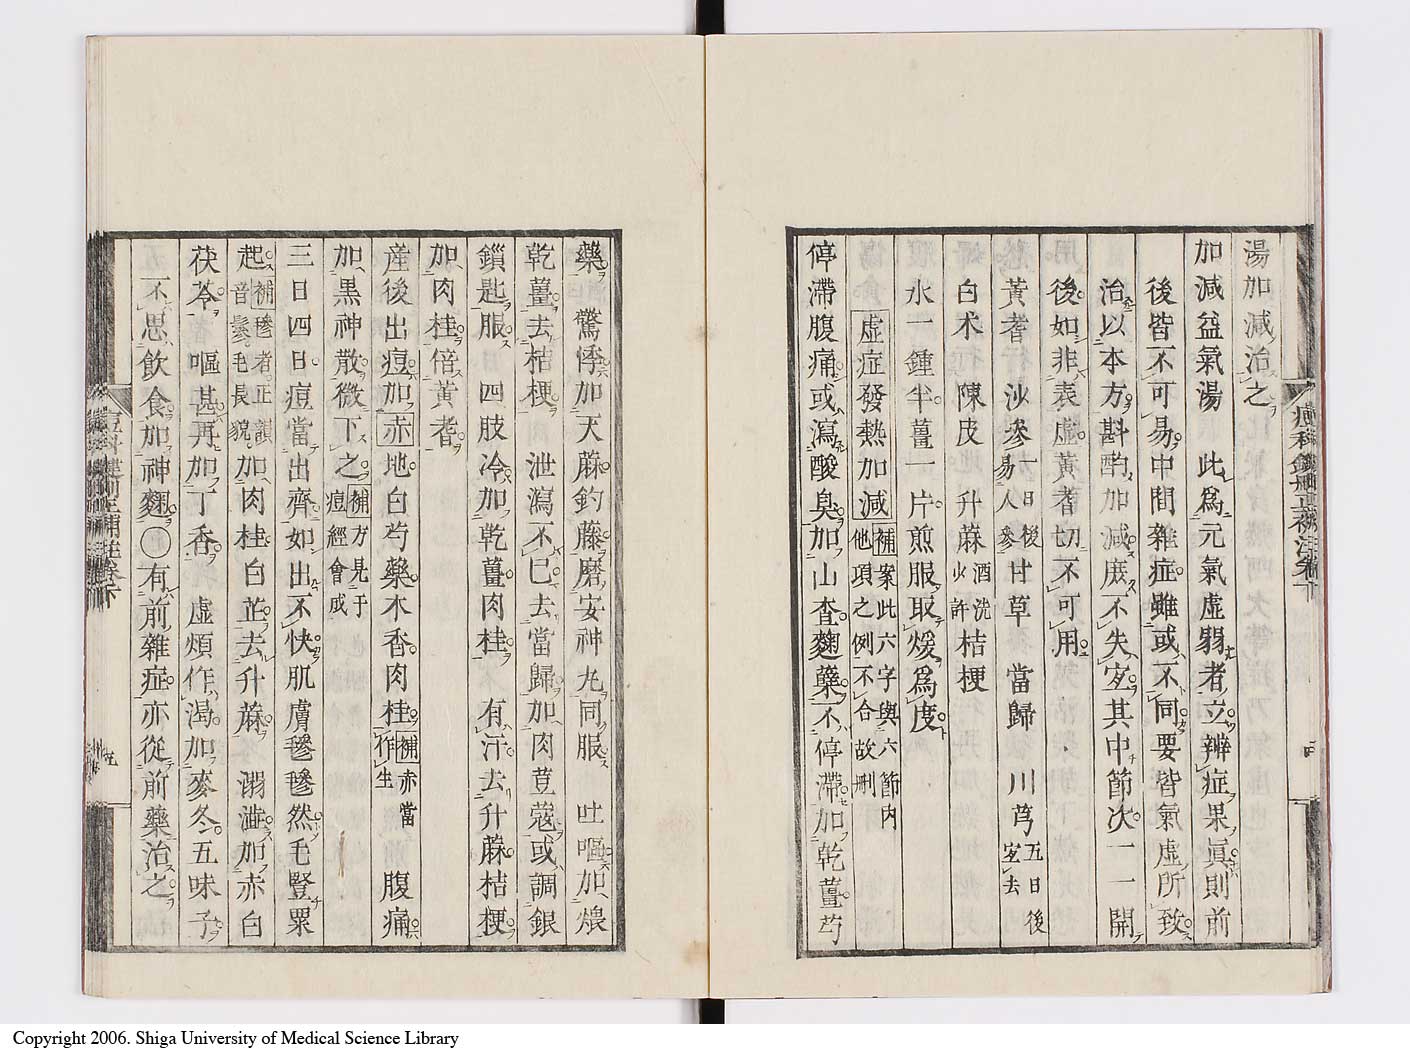 湯加減治之
加減益氣湯 此爲元氣虛弱者立辨症果眞則前
後皆不可易中間雜症雖或不同要皆氣虛所致
治以本方斟酌加減庶不失宜其中節次一一開
後如非表虛黃耆切不可用
黃耆 沙參 日後易人參 甘草 當歸 川芎 五日後宜去
白朮 陳皮 升蔴 酒洗少許 桔梗
水一鍾半薑一片煎服取煖爲度
虛症發熱加減 補案此六字與六節内他項之例不合故刪
停滯腹痛或瀉酸臭加山査麯蘗不停滯加乾薑芍
藥 驚悸加天蔴釣藤磨安神丸同服 吐嘔加煨
乾薑去桔梗 泄瀉不已去當歸加肉荳蔻或調銀
鎖匙服 四肢冷加乾薑肉桂 有汗去升蔴桔梗
加肉桂倍黃耆
産後出痘加赤地白芍藥木香肉桂 補赤當作生 腹痛
加黑神散微下之 補方見于痘經會成
三日四日痘當出齊如出不快肌膚毶毶然毛豎罘
起 補毶者正韻音鬖毛長貌 加肉桂白芷去升蔴 溺澁加赤白
茯苓 嘔甚再加丁香 虛煩作渴加麥冬五味子
不思飲食加神麯〇有前雜症亦從前藥治之
Copyright 2006. Shiga University of Medical Science Library